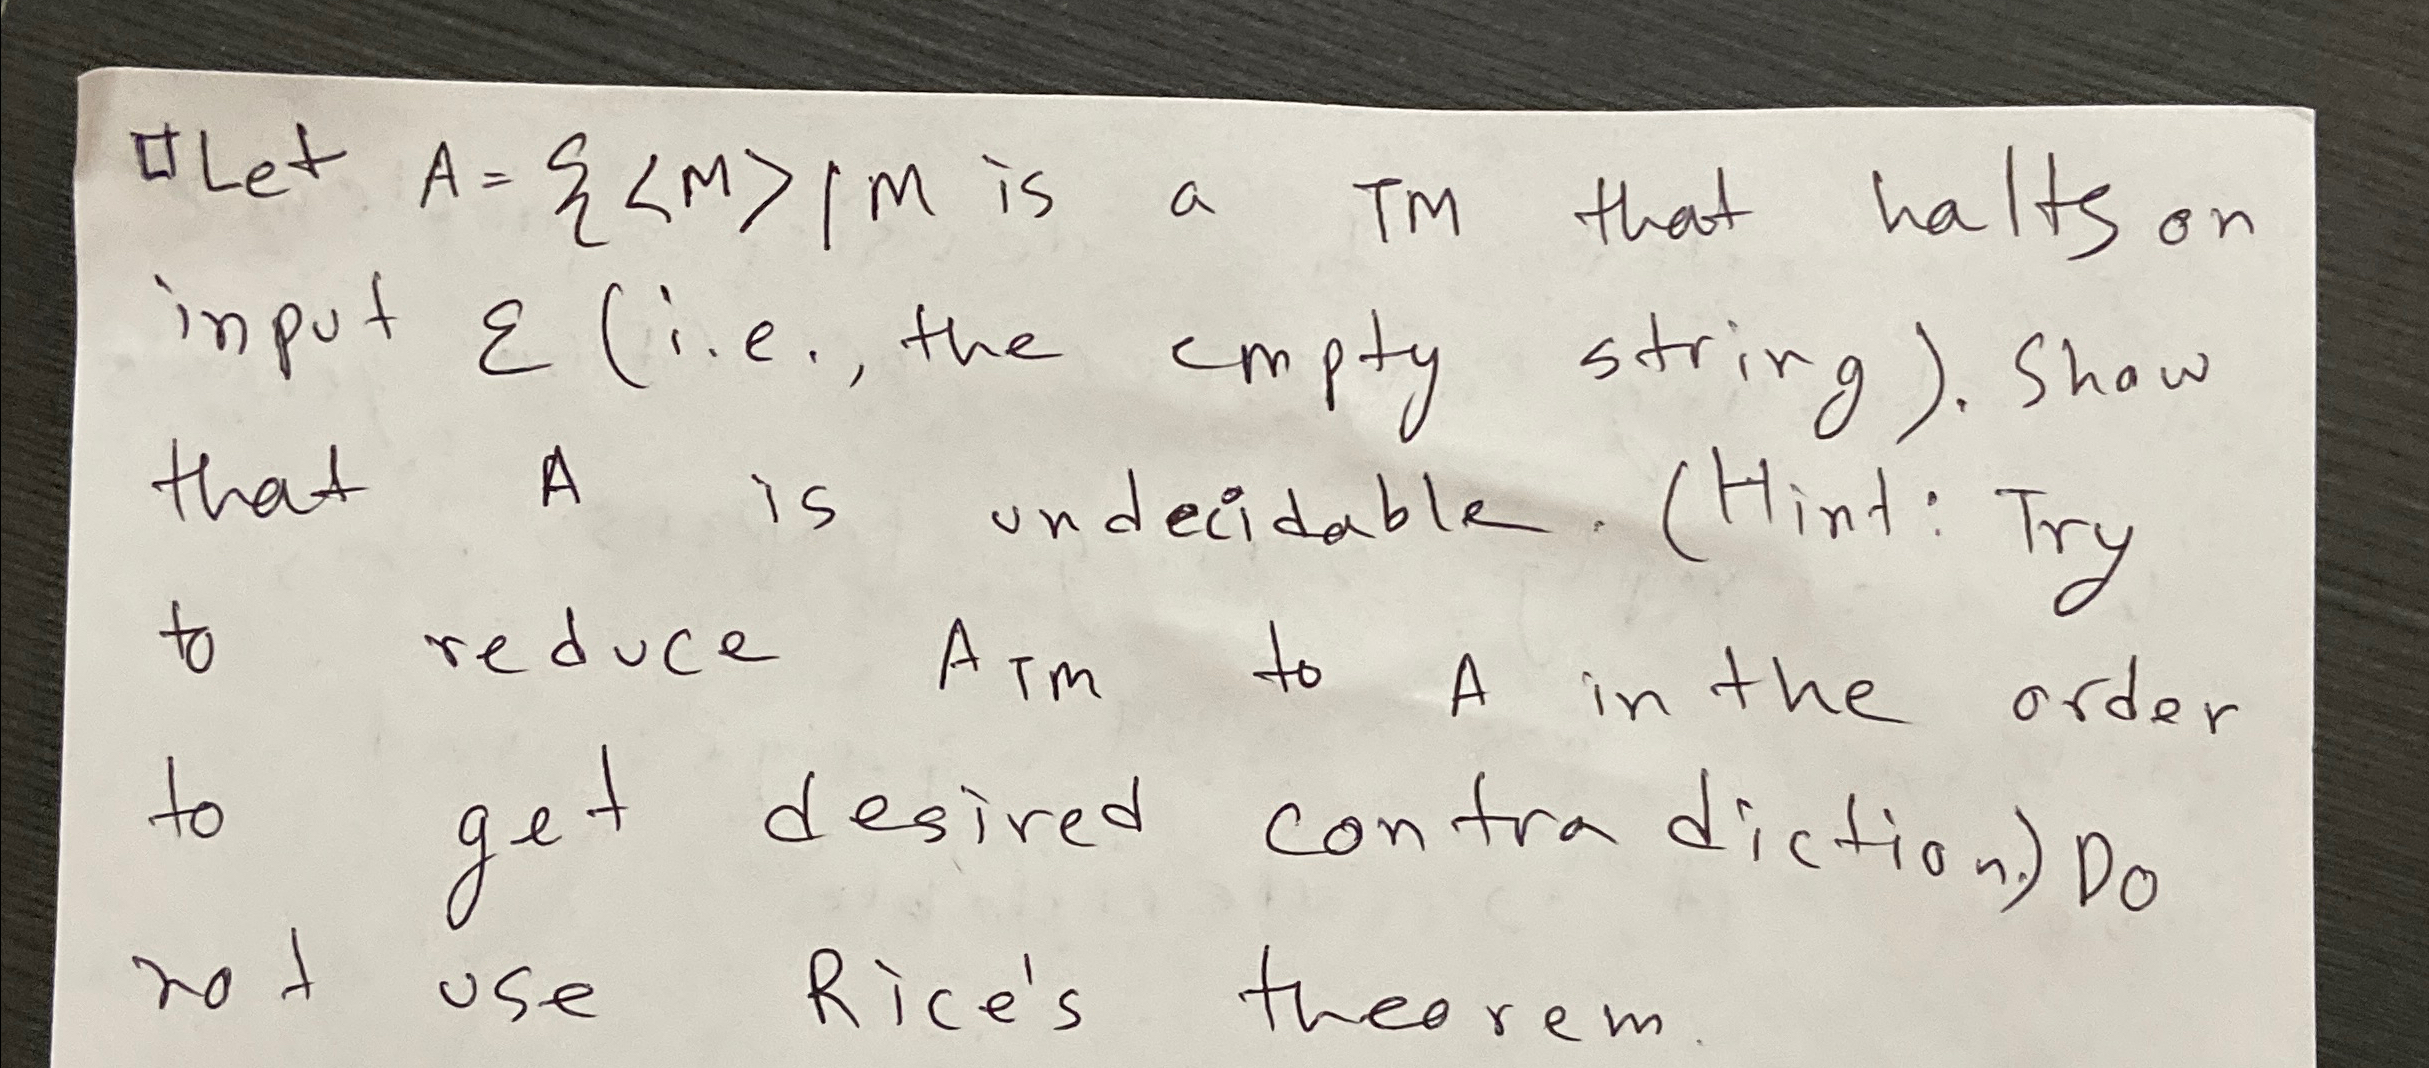 Let A = {<M> | M is a TM that halts on
input ε (i.e., the empty string). Show
that A is undecidable. (Hint: Try
to reduce A_TM to A in the order
to get desired contradiction.) Do
not use Rice's theorem.